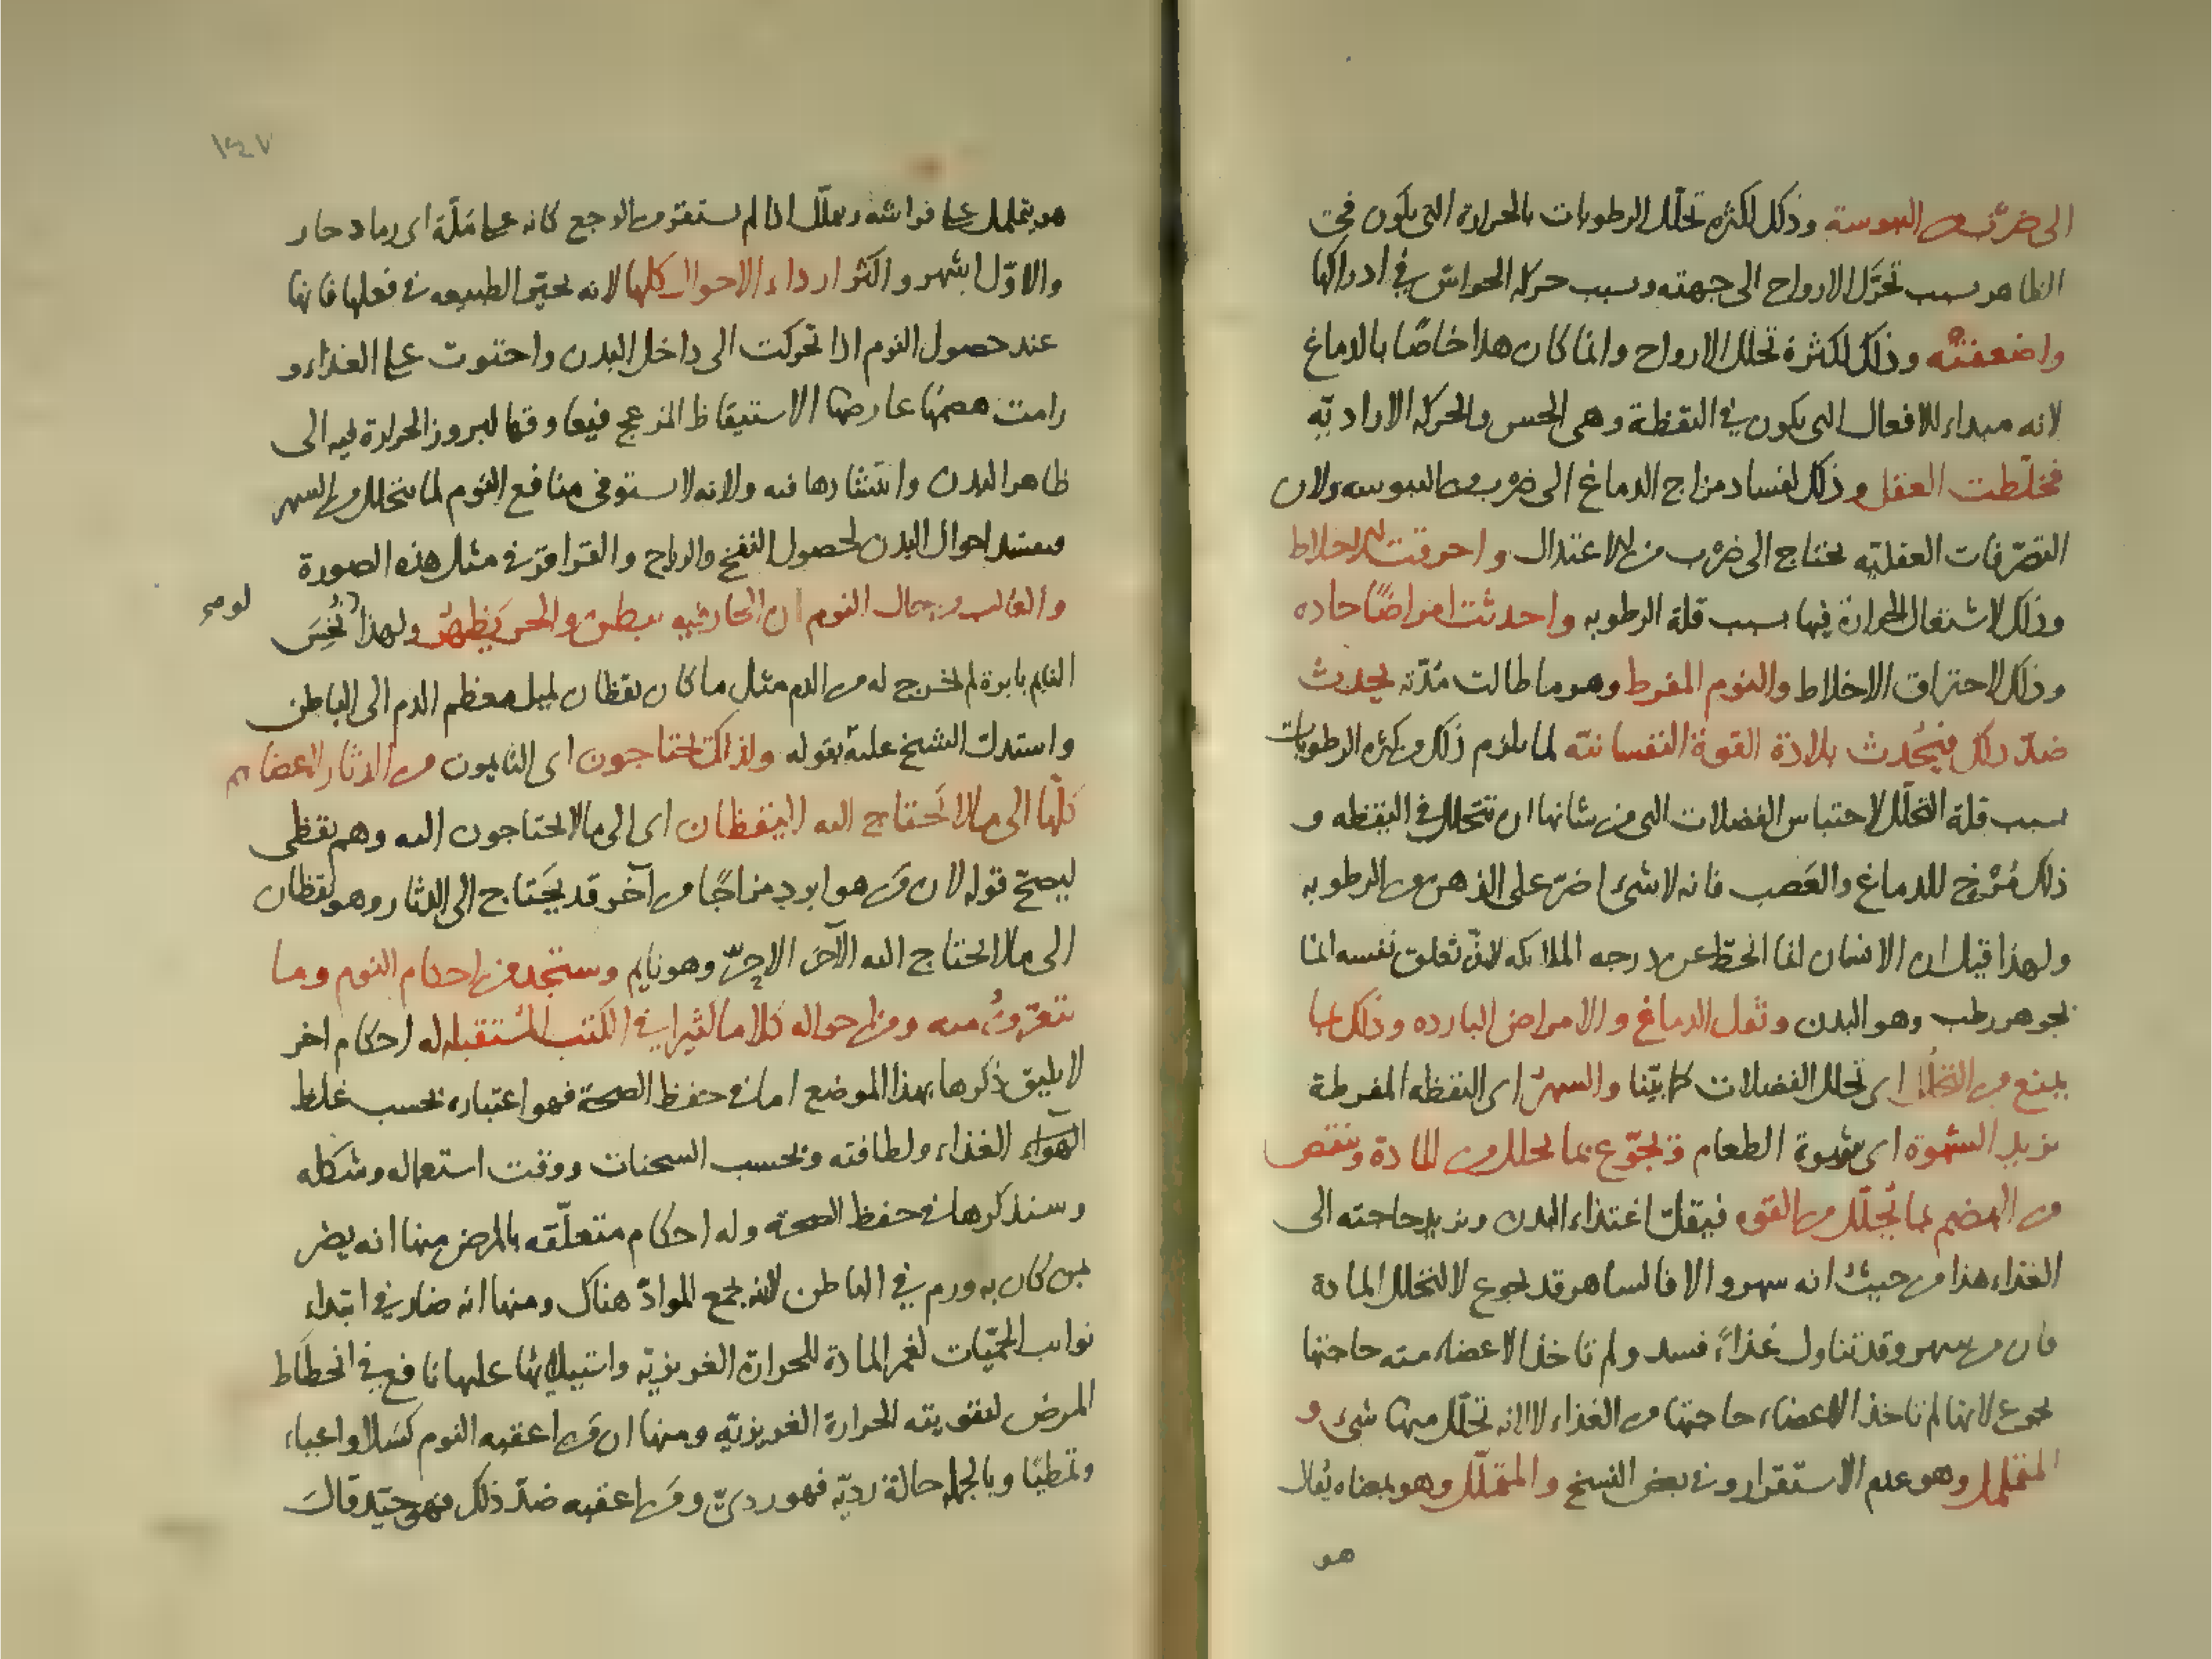 الى ضرب من اليبوسة وذلك لكثرة تحلّل الرطوبات بالحرارة التى يكون فى
الظاهر بسبب تحرّك الارواح الى جهته وبسبب حركة الحواسّ فى ادراكها
واضعفته وذلك لكثرة تحلل الارواح وانما كان هذا خاصًا بالدماغ
لانه مبداء للافعال التى يكون فى اليقظة وهى الحس والحركة الاراديّة
فخلّطت العقل وذلك لفساد مزاج الدماغ الى ضرب من اليبوسه ولان
التصرّفات العقليّه يحتاج الى ضرب من الاعتدال واحرقت الاخلاط
وذلك لاشتعال الحرارة فيها بسبب قلة الرطوبه واحدثت امراضًا حاده
وذلك لاحتراق الاخلاط والنوم المفرط وهو ما طالت مُدّته يحدث
ضدّ ذلك فيُحدث بلادة القوة النفسانيّه لما يلزم ذلك من كثرة الرطوبات
بسبب قلة التحلّل لاحتباس الفضلات التى من شانها ان تتحلل فى اليقظه و
ذلك مُرْخٍ للدماغ والعَصب فانه لا شىء اضرّ على الذهن من الرطوبه
ولهذا قيل ان الانسان انما انحطّ عن درجه الملائكه لانّ تعلق نفسه انما
بجوهر رطب وهو البدن وثقل الدماغ والامراض البارده وذلك بما
يمنع من التحلّل اى تحلل الفضلات كما بيّنا والسهر اى اليقظه المفرطة
يزيد الشهوة اى شهوة الطعام وتجوّع بما يحلل من المادة وينقص
من الهضم بما يُحلّل من القوه فيقلّ اغتذاء البدن ويزيد حاجته الى
الغذاء هذا من حيث انه سهر والا فالساهر قد يجوع لا لتحلل المادة
فان من سهر وقد تناول غذاءً فسد ولم تاخذ الاعضاء منه حاجتها
يجوع لانها لم تاخذ الاعضاء حاجتها من الغذاء لا لانه تحلّل منها شىء و
المتململ وهو عدم الاستقرار وفى بعض النسخ والمتملّل وهو بمعناه يُقال
هو
١٤٧
هو يتململ على فراشه ويتملّل اذا لم يستقرّ من الوجع كانه على مَلّة اى رماد حار
والاوّل اشهر واكثر ارداء الاحوال كلها لانه يحيّر الطبيعه فى فعلها فانها
عند حصول النوم اذا تحركت الى داخل البدن واحتوت على الغذاء و
رامت هضمها عارضها الاستيقاظ المزعج فيعاوقها لبروز الحرارة فيه الى
ظاهر البدن وانتشارها فيه ولانه لا يستوفى منافع النوم لما يتحلل من السهر
فيفسد احوال البدن لحصول النفخ والرياح والقراقر فى مثل هذه الصورة
والغالب من حال النوم ان الحار فيه يبطن والحر يَظهر ولهذا لو نُخِسَ
النايم بابرة لم يخرج له من الدم مثل ما كان يقظان لميل معظم الدم الى الباطن
واستدل الشيخ عليه بقوله ولذلك يحتاجون اى النايمون من الدثار لاعضايهم
كلّها الى ما لا يَحتاج اليه اليقظان اى الى ما لا يحتاجون اليه وهم يقظى
ليصحّ قوله لان من هو ابرد مزاجًا من آخر قد يَحتاج الى الدثار وهو يقظان
الى ما لا يحتاج اليه الآخر الاحرّ وهو نايم وستجد من احكام النوم وما
يتعرّف منه ومن احواله كلاما كثيرا فى الكتب المُستقبله له احكام اخر
لا يليق ذكرها بهذا الموضع اما فى حفظ الصحة فهو اعتباره بحسب غلظ
الهواء الغذاء ولطافته وبحسب السحنات ووقت استعماله وشكله
وسنذكرها فى حفظ الصحة وله احكام متعلّقه بالمرض منها انه يضر
بمن كان به ورم فى الباطن لانه يجمع الموادّ هناك ومنها انه ضار فى ابتداء
نوايب الحمّيات لغمر المادة للحرارة الغريزيّه واستيلائها عليها نافع فى انحطاط
المرض لتقويته الحرارة الغريزيّه ومنها ان من اعقبه النوم كسَلا واعياء
وتمطيًا وبالجملة حالة رديّه فهو ردىّ ومن اعقبه ضدّ ذلك فهو جيّد قالَ